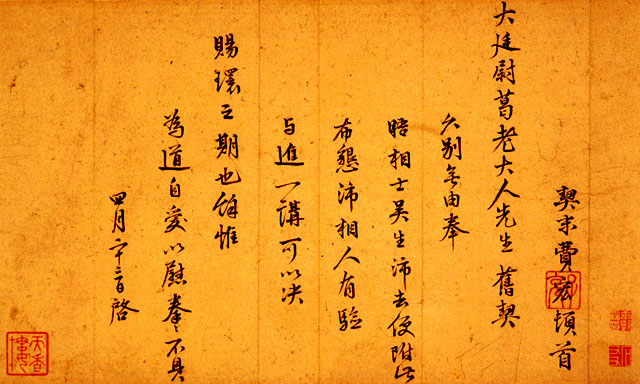 契末費宏頓首
大廷尉葛老大人先生舊契
久別無由奉
晤相士吳生沛去便附此
布懇沛相人有驗
与進一講可以决
賜環之期也餘惟
為道自愛以慰拳〻不具
四月二十二日啓
天香樓